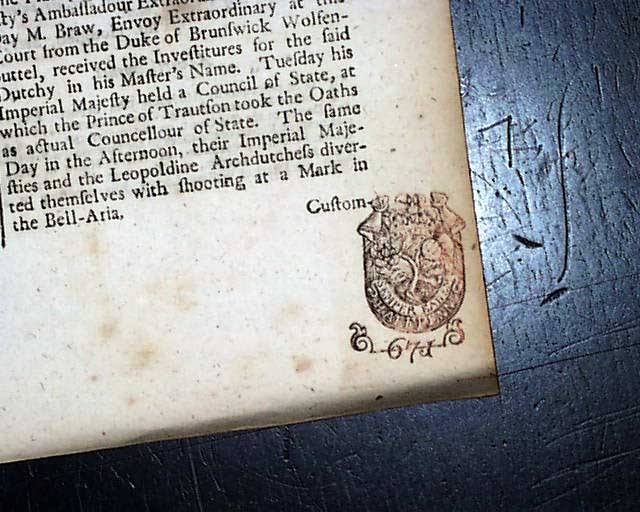 ty's Ambassadour Extraor
ay M. Braw, Envoy Extraordinary at this
Court from the Duke of Brunſwick Wolfen-
buttel, received the Inveſtitures for the ſaid
Dutchy in his Maſter's Name. Tueſday his
Imperial Majeſty held a Council of State, at
which the Prince of Trautſon took the Oaths
as actual Councellour of State. The ſame
Day in the Afternoon, their Imperial Maje-
ſties and the Leopoldine Archdutcheſs diver-
ted themſelves with ſhooting at a Mark in
the Bell-Aria,
Cuſtom-
SEMPER EADEM